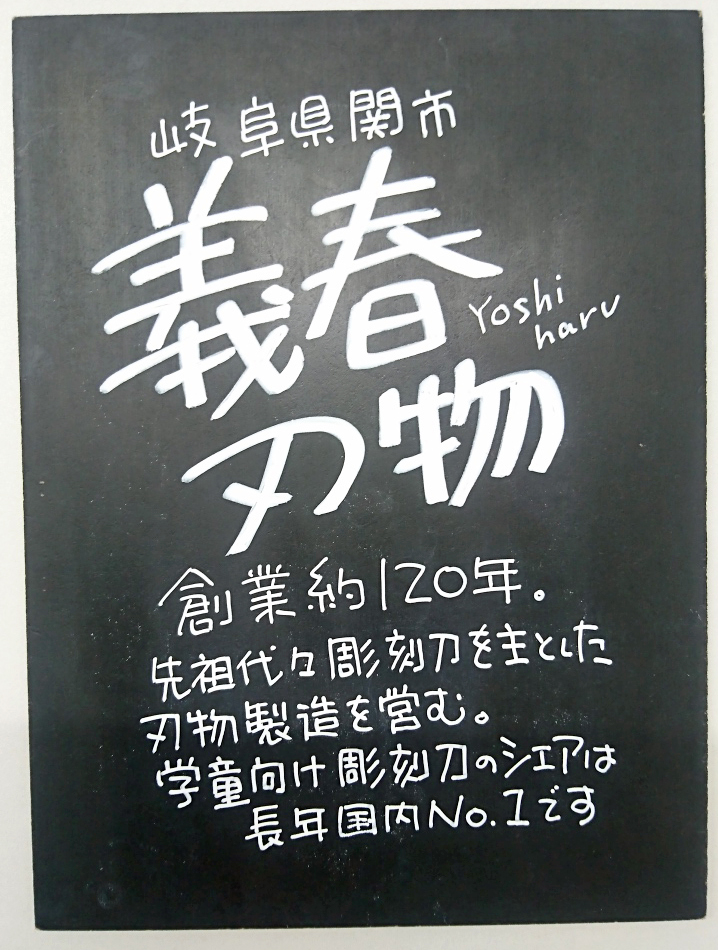 岐阜県関市
義春
Yoshi
haru
刃物
創業約120年。
先祖代々彫刻刀を主とした
刃物製造を営む。
学童向け彫刻刀のシェアは
長年国内No.1です